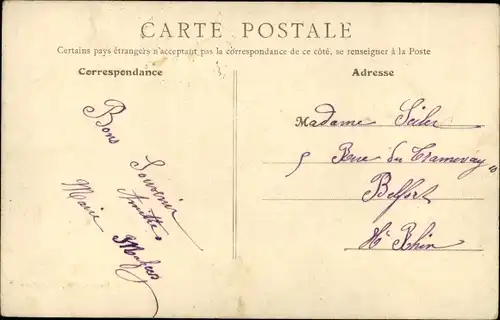 CARTE POSTALE
Certains pays étrangers n'acceptant pas la correspondance de ce côté, se renseigner à la Poste
Correspondance
Adresse
Bons
Souvenir
Amitiés
Marie
Madame Seiler
5 Rue du Tramevay
Belfort
Ht Rhin